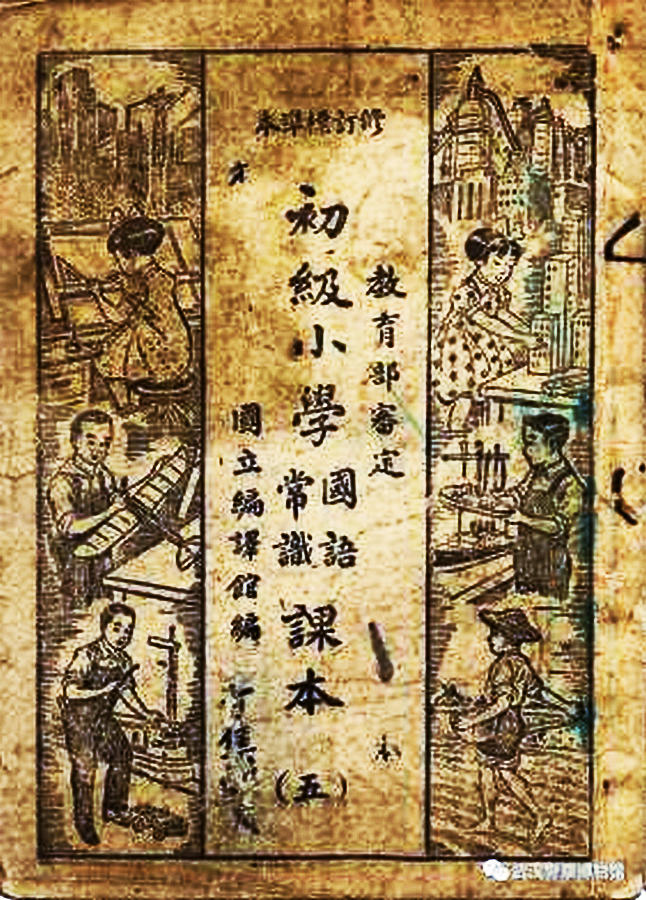 修訂標準本
教育部審定
初級小學
國語
常識
課本
(五)
國立編譯館編
本